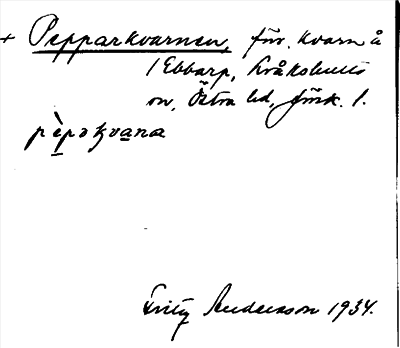 + Pepparkvarnen, förr. kvarn å
1 Ebbarp, Kråkshults
sn, Östra hd, Jönk. l.
pèpəkvana
Fritz Andersson 1934.